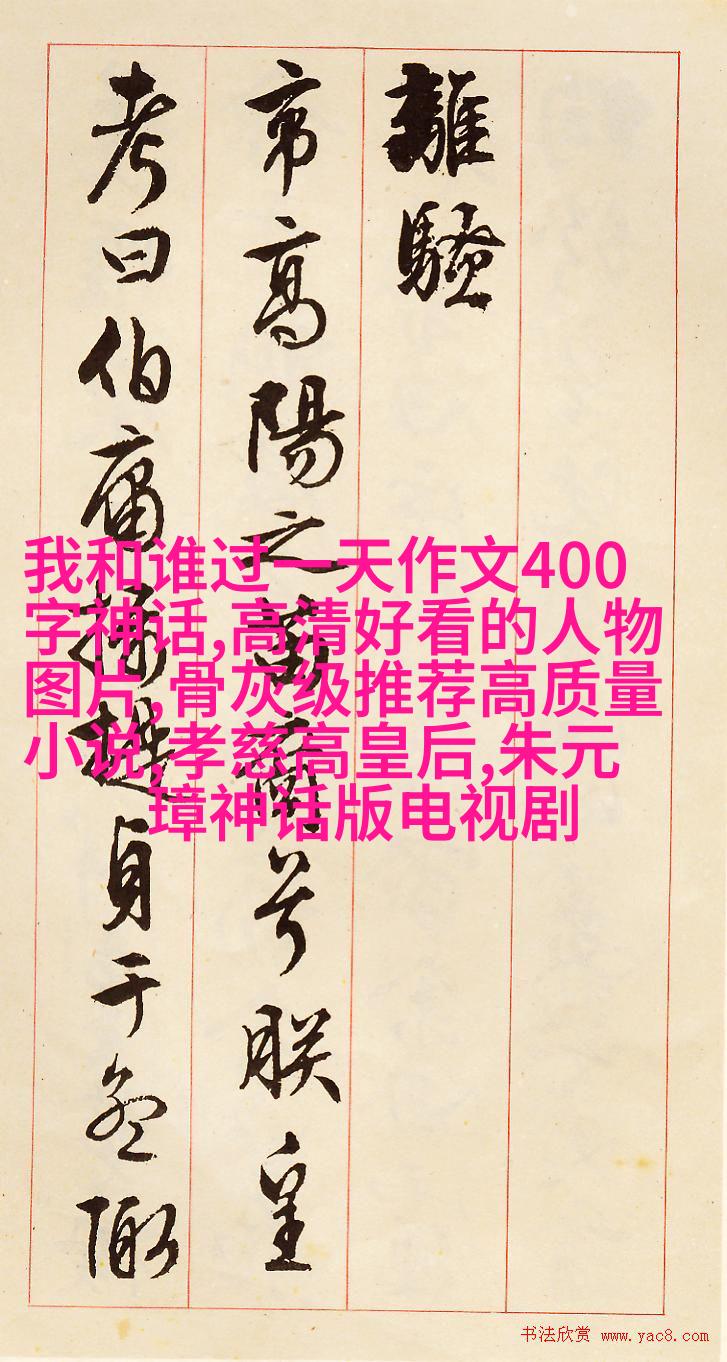 離騷
帝高陽之苗裔兮朕皇
考曰伯庸攝提貞于孟陬
我和谁过一天作文400
字神话,高清好看的人物
图片,骨灰级推荐高质量
小说,孝慈高皇后,朱元
璋神话版电视剧
书法欣赏 www.yac8.com